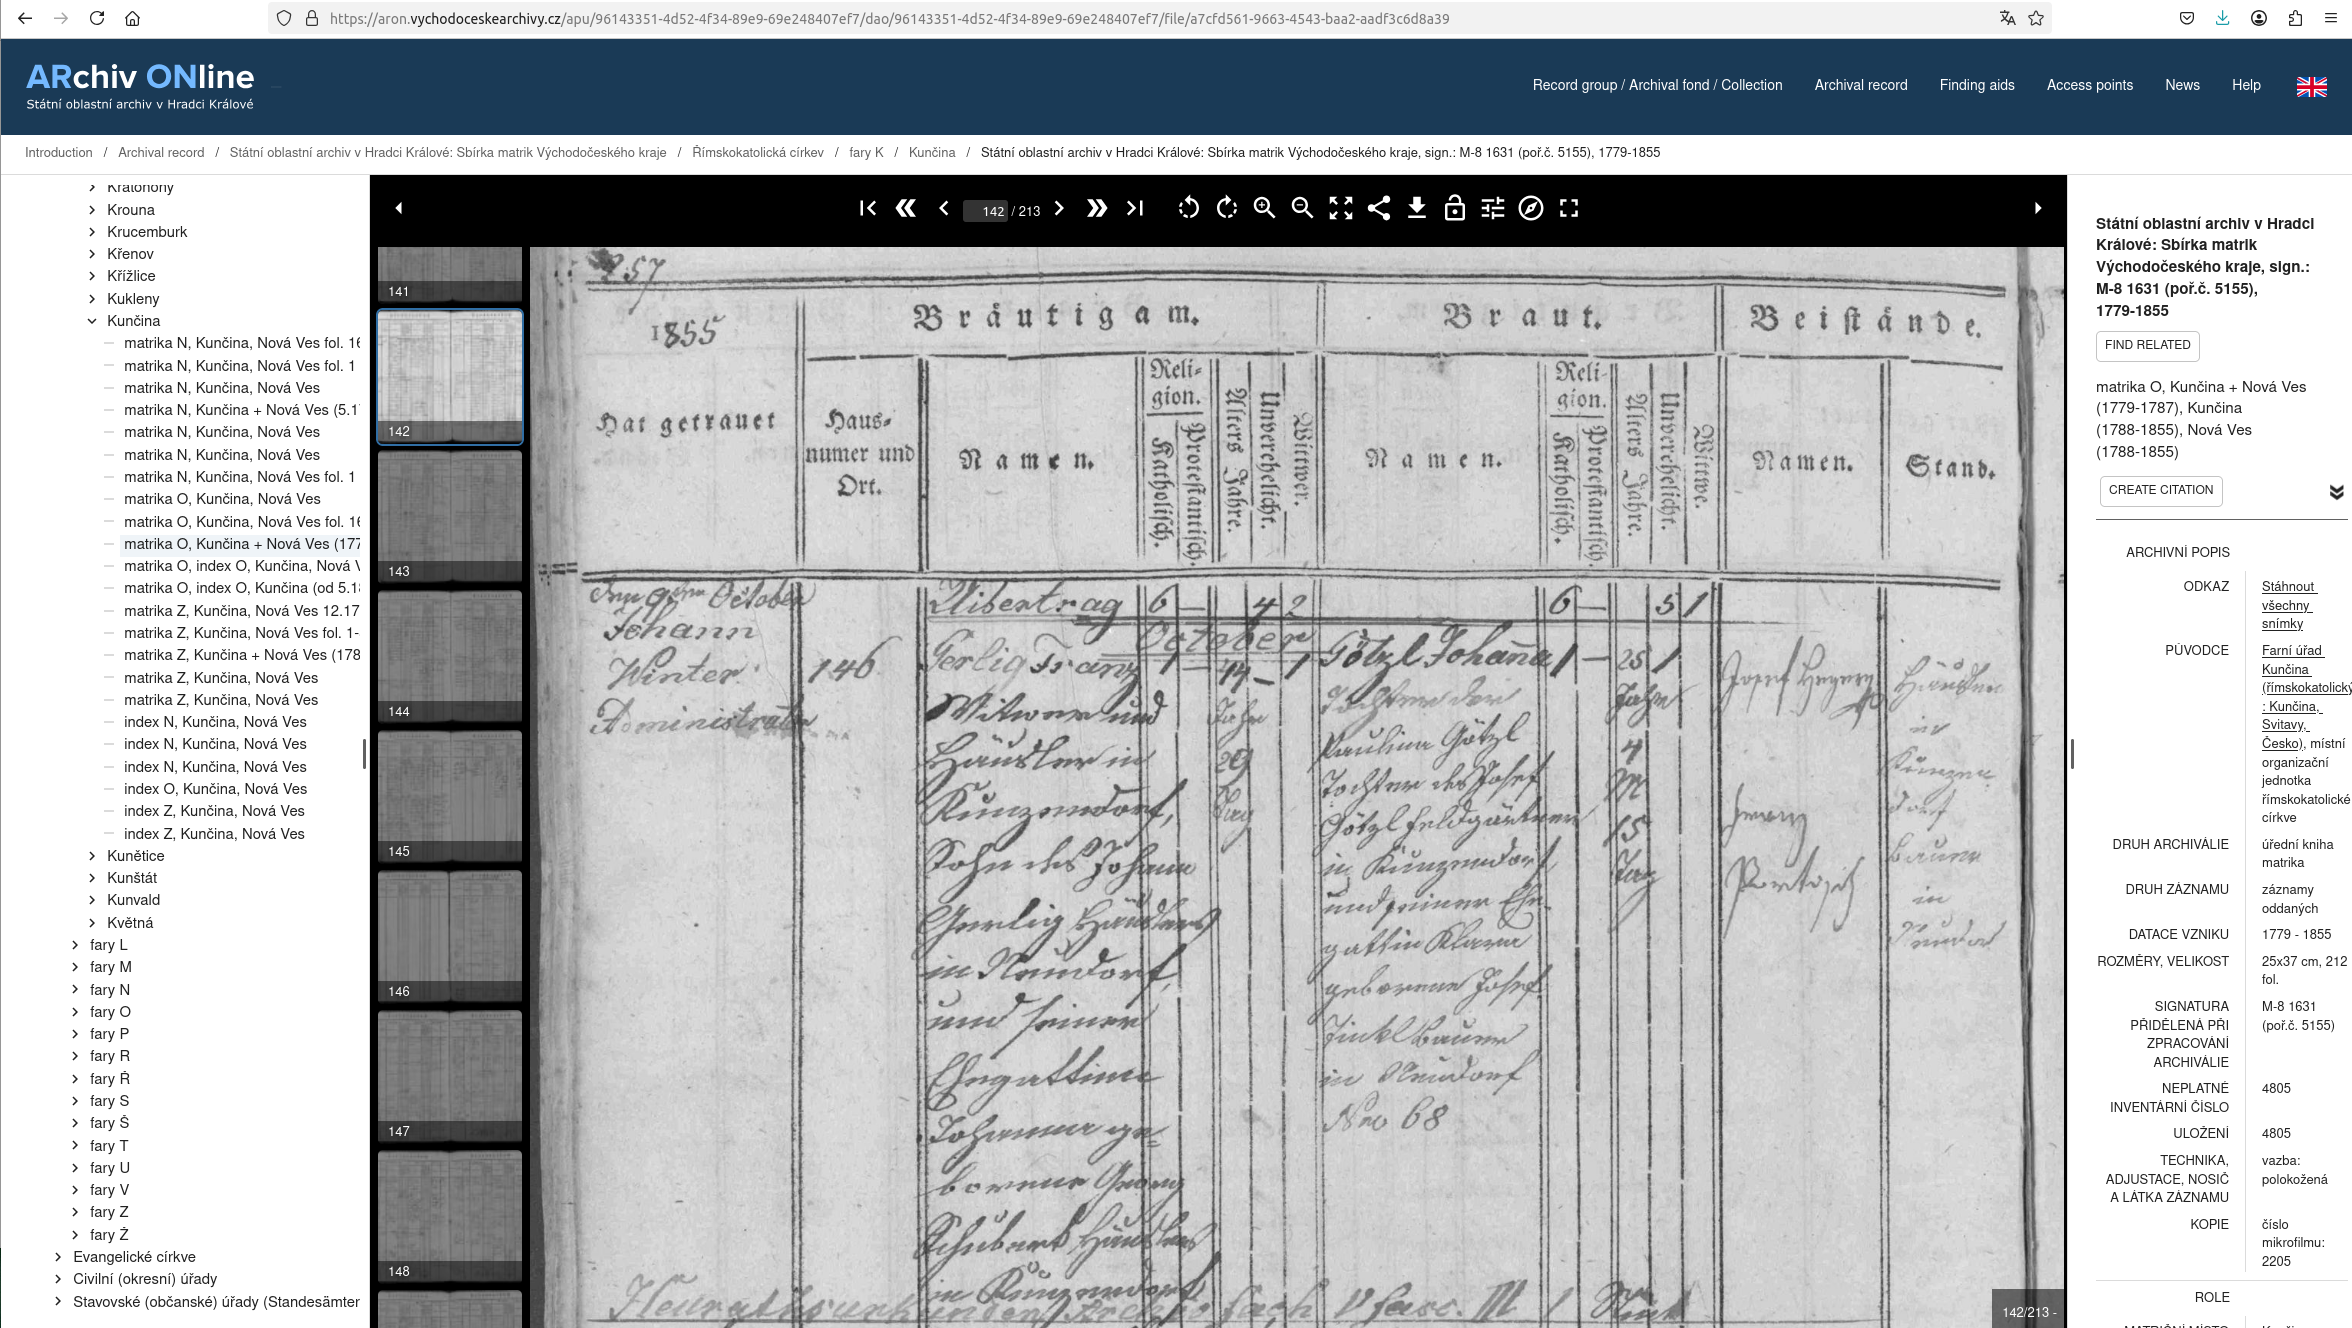 https://aron.vychodoceskearchivy.cz/apu/96143351-4d52-4f34-89e9-69e248407ef7/dao/96143351-4d52-4f34-89e9-69e248407ef7/file/a7cfd561-9663-4543-baa2-aadf3c6d8a39
ARchiv ONline
Státní oblastní archiv v Hradci Králové
Record group / Archival fond / Collection
Archival record
Finding aids
Access points
News
Help
Introduction / Archival record / Státní oblastní archiv v Hradci Králové: Sbírka matrik Východočeského kraje / Římskokatolická církev / fary K / Kunčina / Státní oblastní archiv v Hradci Králové: Sbírka matrik Východočeského kraje, sign.: M-8 1631 (poř.č. 5155), 1779-1855
Kratonohy
Krouna
Krucemburk
Křenov
Křížlice
Kukleny
Kunčina
matrika N, Kunčina, Nová Ves fol. 16
matrika N, Kunčina, Nová Ves fol. 1
matrika N, Kunčina, Nová Ves
matrika N, Kunčina + Nová Ves (5.1
matrika N, Kunčina, Nová Ves
matrika N, Kunčina, Nová Ves
matrika N, Kunčina, Nová Ves fol. 1
matrika O, Kunčina, Nová Ves
matrika O, Kunčina, Nová Ves fol. 16
matrika O, Kunčina + Nová Ves (177
matrika O, index O, Kunčina, Nová V
matrika O, index O, Kunčina (od 5.18
matrika Z, Kunčina, Nová Ves 12.17
matrika Z, Kunčina, Nová Ves fol. 1-
matrika Z, Kunčina + Nová Ves (178
matrika Z, Kunčina, Nová Ves
matrika Z, Kunčina, Nová Ves
index N, Kunčina, Nová Ves
index N, Kunčina, Nová Ves
index N, Kunčina, Nová Ves
index O, Kunčina, Nová Ves
index Z, Kunčina, Nová Ves
index Z, Kunčina, Nová Ves
Kunětice
Kunštát
Kunvald
Květná
fary L
fary M
fary N
fary O
fary P
fary R
fary Ř
fary S
fary Š
fary T
fary U
fary V
fary Z
fary Ž
Evangelické církve
Civilní (okresní) úřady
Stavovské (občanské) úřady (Standesämter
142 / 213
141
142
143
144
145
146
147
148
257
1855
Bräutigam.
Braut.
Beistände.
Hat getrauet
Haus-
numer und
Ort.
Namen.
Reli-
gion.
Katholisch.
Protestantisch.
Alters Jahre.
Unverehelicht.
Wittwer.
Namen.
Reli-
gion.
Katholisch.
Protestantisch.
Alters Jahre.
Unverehelicht.
Wittwe.
Namen.
Stand.
den 9ten October
Johann
Winter
Administrator
146
Uibertrag 6 — 4 2
6 — 5 1
October
Gerlig Franz 1 — 44 — 1
Witwer und
Häusler in
Kunzendorf,
Sohn des Johann
Gerlig Häuslers
in Neudorf,
und seiner
Ehegattinn
Johanna ge-
borene Georg
Schubert Häuslers
in Kunzendorf
Jahr
29
Tag
Götzl Johanna 1 — 25 1
Tochter der
Paulina Götzl
Tochter des Josef
Götzl Feldgärtner
in Kunzendorf,
und seiner Ehe-
gattin Klara
geborene Josef
Zinkl Bauer
in Neudorf
Nro 68
Jahr
4
M
15
Tag
Josef
Franz
Häusler
in
Kunzen
dorf
Bauer
in
Neudorf
Fach V fasc. III 1
142/213 -
Státní oblastní archiv v Hradci
Králové: Sbírka matrik
Východočeského kraje, sign.:
M-8 1631 (poř.č. 5155),
1779-1855
FIND RELATED
matrika O, Kunčina + Nová Ves
(1779-1787), Kunčina
(1788-1855), Nová Ves
(1788-1855)
CREATE CITATION
ARCHIVNÍ POPIS
ODKAZ
Stáhnout
všechny
snímky
PŮVODCE
Farní úřad
Kunčina
(římskokatolický
: Kunčina,
Svitavy,
Česko), místní
organizační
jednotka
římskokatolické
církve
DRUH ARCHIVÁLIE
úřední kniha
matrika
DRUH ZÁZNAMU
záznamy
oddaných
DATACE VZNIKU
1779 - 1855
ROZMĚRY, VELIKOST
25x37 cm, 212
fol.
SIGNATURA
PŘIDĚLENÁ PŘI
ZPRACOVÁNÍ
ARCHIVÁLIE
M-8 1631
(poř.č. 5155)
NEPLATNÉ
INVENTÁRNÍ ČÍSLO
4805
ULOŽENÍ
4805
TECHNIKA,
ADJUSTACE, NOSIČ
A LÁTKA ZÁZNAMU
vazba:
polokožená
KOPIE
číslo
mikrofilmu:
2205
ROLE